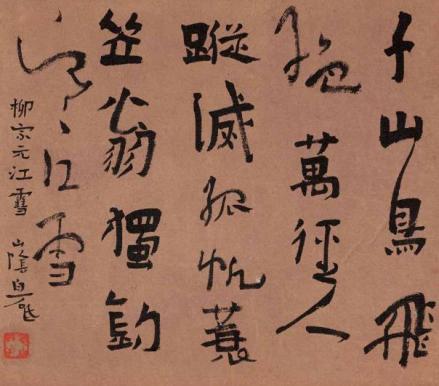 千山鳥飛
絶萬徑人
蹤滅孤帆蓑
笠翁獨釣
寒江雪
柳宗元江雪
山陰白砥